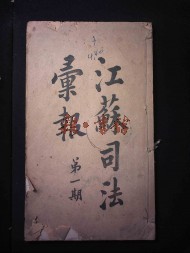 江蘇司法
彙報
第一期